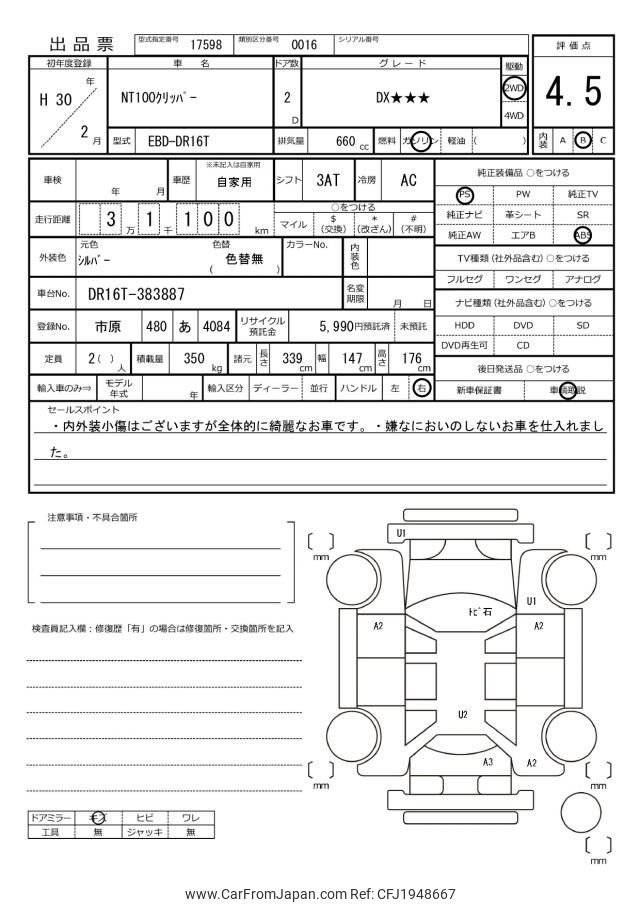 出品票
型式指定番号 17598 類別区分番号 0016 シリアル番号
評価点
4.5
内装 A B C
初年度登録 車名 ドア数 グレード 駆動
H 30 年 2 月
NT100ｸﾘｯﾊﾟｰ
2 D
DX★★★
2WD
4WD
型式 EBD-DR16T 排気量 660 cc 燃料 ガソリン 軽油 ( )
車検 年 月 車歴 ※未記入は自家用 自家用 シフト 3AT 冷房 AC
走行距離 3 万 1 千 1 0 0 km
○をつける
マイル $ (交換) * (改ざん) # (不明)
外装色 元色 ｼﾙﾊﾞｰ 色替 ( 色替無 ) カラーNo. 内装色
車台No. DR16T-383887 名変期限 月 日
登録No. 市原 480 あ 4084 リサイクル預託金 5,990円預託済 未預託
定員 2 ( ) 人 積載量 350 kg 諸元 長さ 339 cm 幅 147 cm 高さ 176 cm
輸入車のみ⇒ モデル年式 年 輸入区分 ディーラー 並行 ハンドル 左 右
純正装備品 ○をつける
PS PW 純正TV
純正ナビ 革シート SR
純正AW エアB ABS
TV種類(社外品含む) ○をつける
フルセグ ワンセグ アナログ
ナビ種類(社外品含む) ○をつける
HDD DVD SD
DVD再生可 CD
後日発送品 ○をつける
新車保証書 車輌取説
セールスポイント
・内外装小傷はございますが全体的に綺麗なお車です。・嫌なにおいのしないお車を仕入れまし
た。
注意事項・不具合箇所
検査員記入欄：修復歴「有」の場合は修復箇所・交換箇所を記入
ドアミラー キズ ヒビ ワレ
工具 無 ジャッキ 無
U1
〔 〕 mm
〔 〕 mm
U1
ﾄﾋﾞ石
A2
A2
U2
A3
A2
〔 〕 mm
〔 〕 mm
〔 〕 mm
www.CarFromJapan.com Ref: CFJ1948667